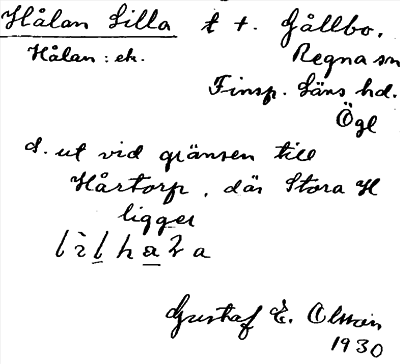 Hålan Lilla t t. Gållbo.
Hålan : ek. Regna sn
Finsp. läns hd.
Ögl
d. ut vid gränsen till
Hårtorp, där Stora H
ligger
Gustaf E. Olsson
1930